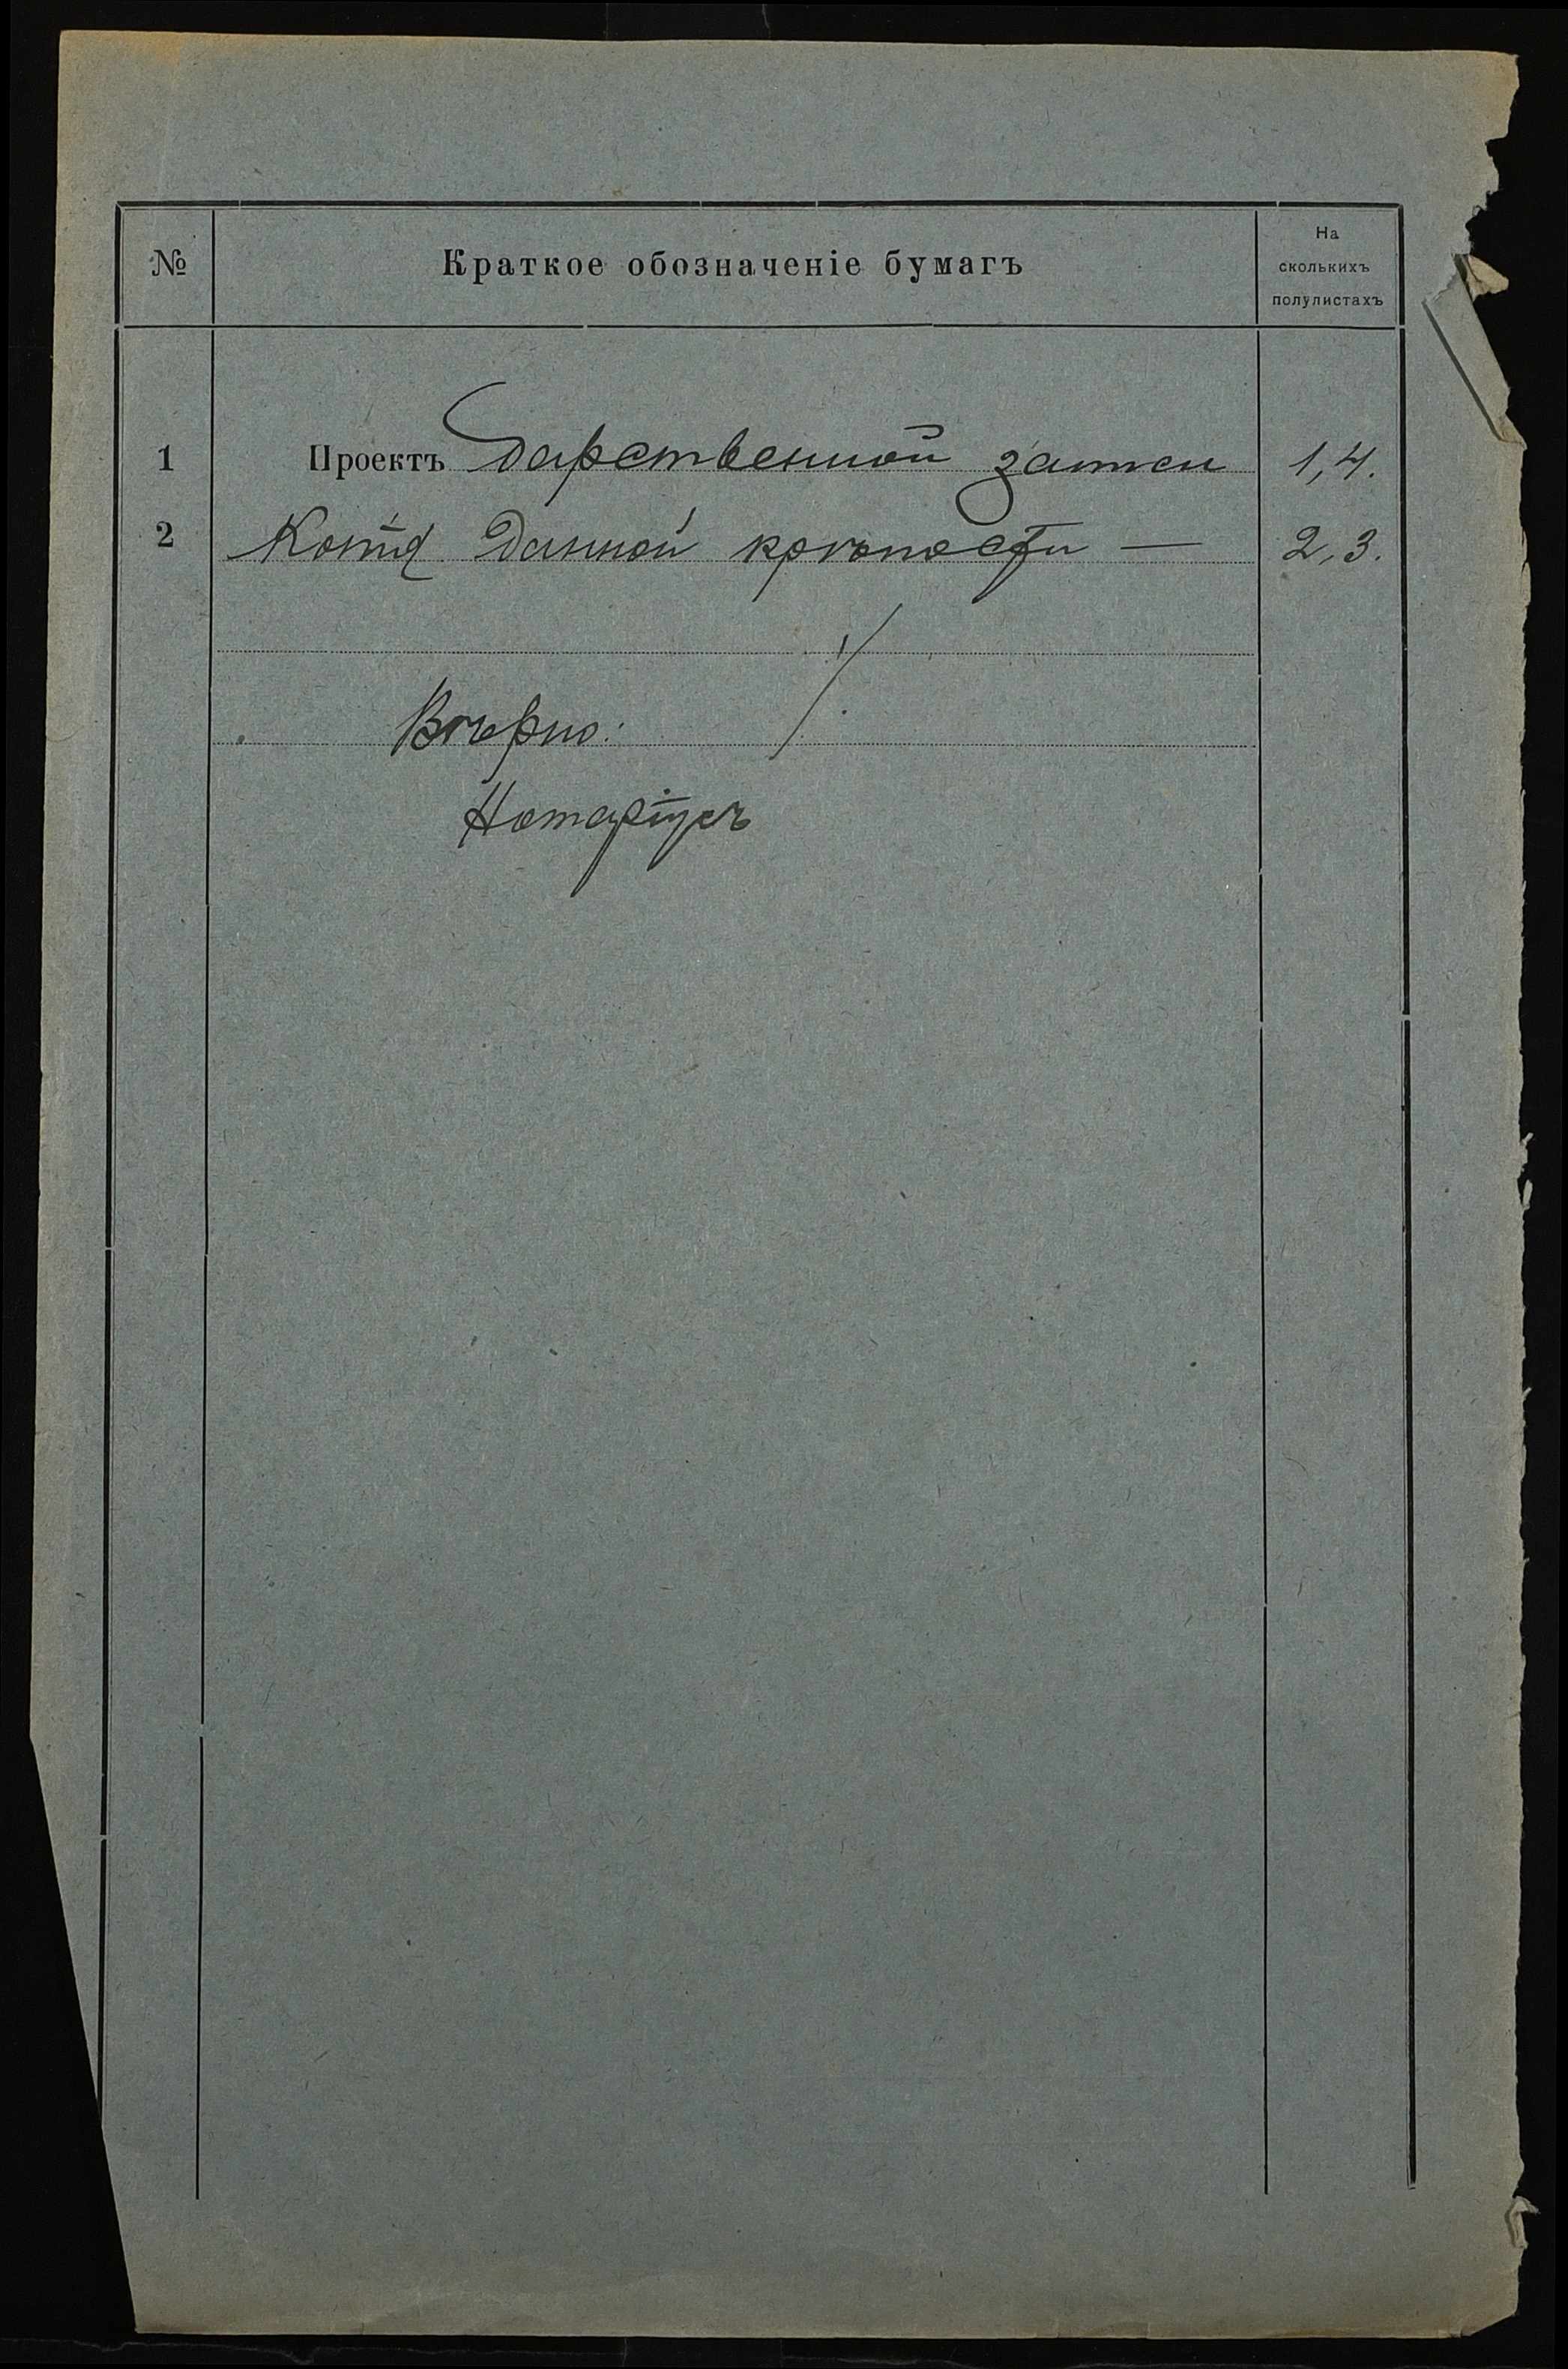 № Краткое обозначеніе бумагъ На
сколькихъ
полулистахъ
1 Проектъ дарственной записи 1,4.
2 Копія данной крѣпости — 2,3.
Вѣрно:
Нотаріусъ